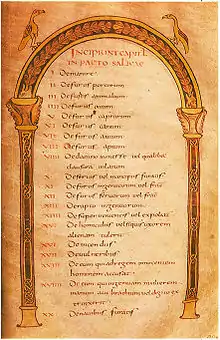 INCIPIUNT CAPITL
IN PACTO SALICAE
I De mannire
II De furtis porcorum
III De furtis animalium
IIII De furtis ouium
V De furtis caprarum
VI De furtis canum
VII De furtis auium
VIII De furtis apium
VIIII De damno in messe uel qualibet
clausura inlatum
X De seruis uel mancipiis furatis
XI De furtis ingenuorum uel
XII De furtis seruorum uel
XIII De raptu ingenuorum
XIIII De superuenientis uel expoliatis
XV De homicidiis uel si quis uxorem
alienam tulerit
XVI De incendiis
XVII De uulneribus
XVIII De eum qui ad regem innocentem
hominem accusat
XVIIII De eum qui ingenuam mulierem
manum aut brachium uel digitum
XX De nauibus furatis